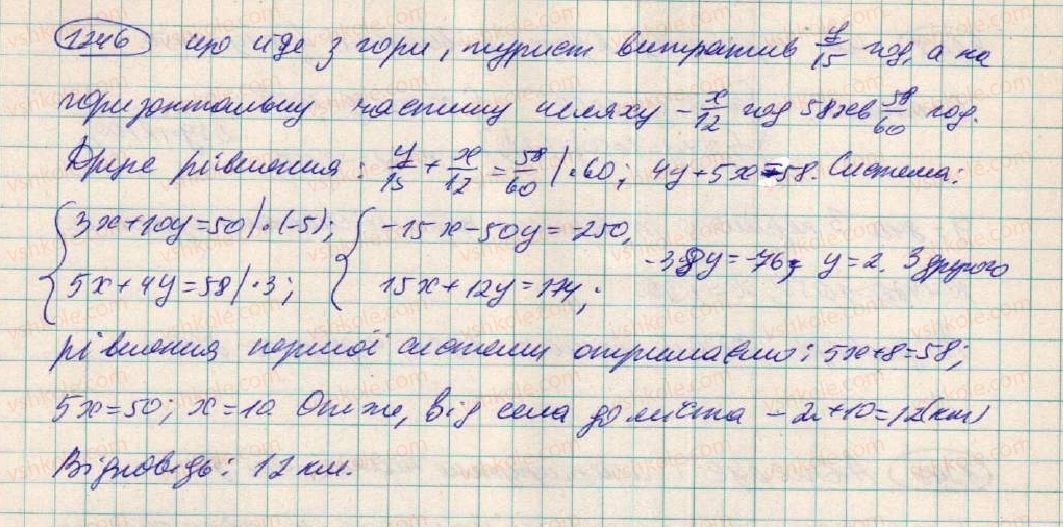 1246 що йде з гори, турист витратив y/15 год, а на
горизонтальну частину шляху – x/12 год 58хв 58/60 год.
Друге рівняння: y/15 + x/12 = 58/60 |·60; 4y+5x=58. Система:
{3x+10y=50|·(-5); {-15x-50y=-250,
5x+4y=58|·3; 15x+12y=174; -38y=-76; y=2. З другого
рівняння першої системи отримаємо: 5x+8=58;
5x=50; x=10. Отже, від села до міста – 2+10=12(км)
Відповідь: 12 км.